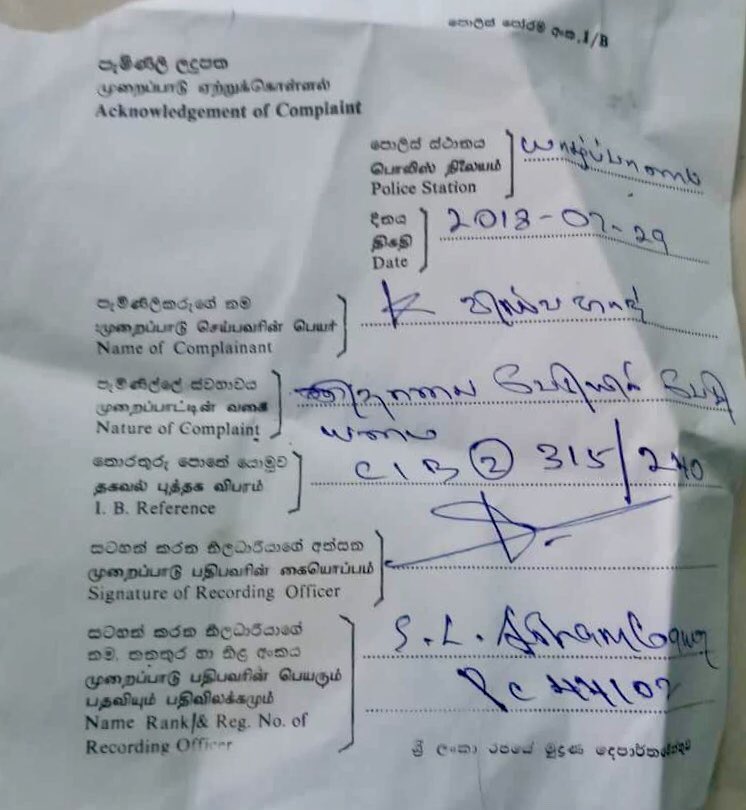 පොලිස් පෝරම අංක, 1/B
පැමිණිලි ලදුපත
முறைப்பாடு ஏற்றுக்கொள்ளல்
Acknowledgement of Complaint
පොලිස් ස්ථානය
பொலிஸ் நிலையம்
Police Station
யாழ்ப்பாணம்
දිනය
திகதி
Date
2018-07-29
පැමිණිලිකරුගේ නම
முறைப்பாடு செய்பவரின் பெயர்
Name of Complainant
K
පැමිණිල්ලේ ස්වභාවය
முறைப்பாட்டின் வகை
Nature of Complaint
තොරතුරු පොතේ යොමුව
தகவல் புத்தக விபரம்
I. B. Reference
CIB ② 315/240
සටහන් කරන නිලධාරියාගේ අත්සන
முறைப்பாடு பதிபவரின் கையொப்பம்
Signature of Recording Officer
සටහන් කරන නිලධාරියාගේ
නම, තනතුර හා නිළ අංකය
முறைப்பாடு பதிபவரின் பெயரும்
பதவியும் பதிவிலக்கமும்
Name Rank & Reg. No. of
Recording Officer
S. L.
PC 44107
ශ්‍රී ලංකා රජයේ මුද්‍රණ දෙපාර්තමේන්තුව